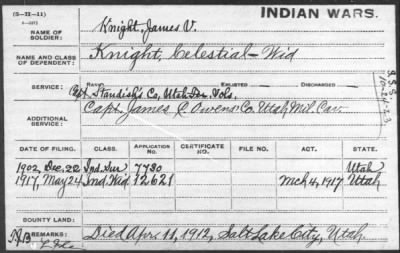 (3-11-11)
INDIAN WARS.
NAME OF SOLDIER: Knight, James V.
NAME AND CLASS OF DEPENDENT: Knight, Celestial - Wid
SERVICE: RANK ENLISTED DISCHARGED
Capt Standish's Co, Utah Ter. Vols.
ADDITIONAL SERVICE: Capt. James C Owens Co. Utah Mil. Cav.
DATE OF FILING. CLASS. APPLICATION NO. CERTIFICATE NO. FILE. ACT. STATE.
1902, Dec, 22 Ind. Sur 7730 Utah
1917, May 24 Ind. Wid 12621 Mch 4, 1917 Utah
BOUNTY LAND:
REMARKS: Died Apr. 11, 1912, Salt Lake City, Utah